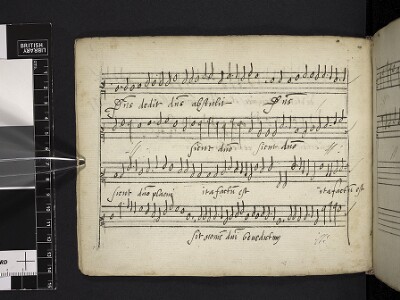 Dns dedit dns abstulit Dns
sicut dno sicut dno
sicut dno placuit ita factu est ita factu est
sit nomen dni benedictum